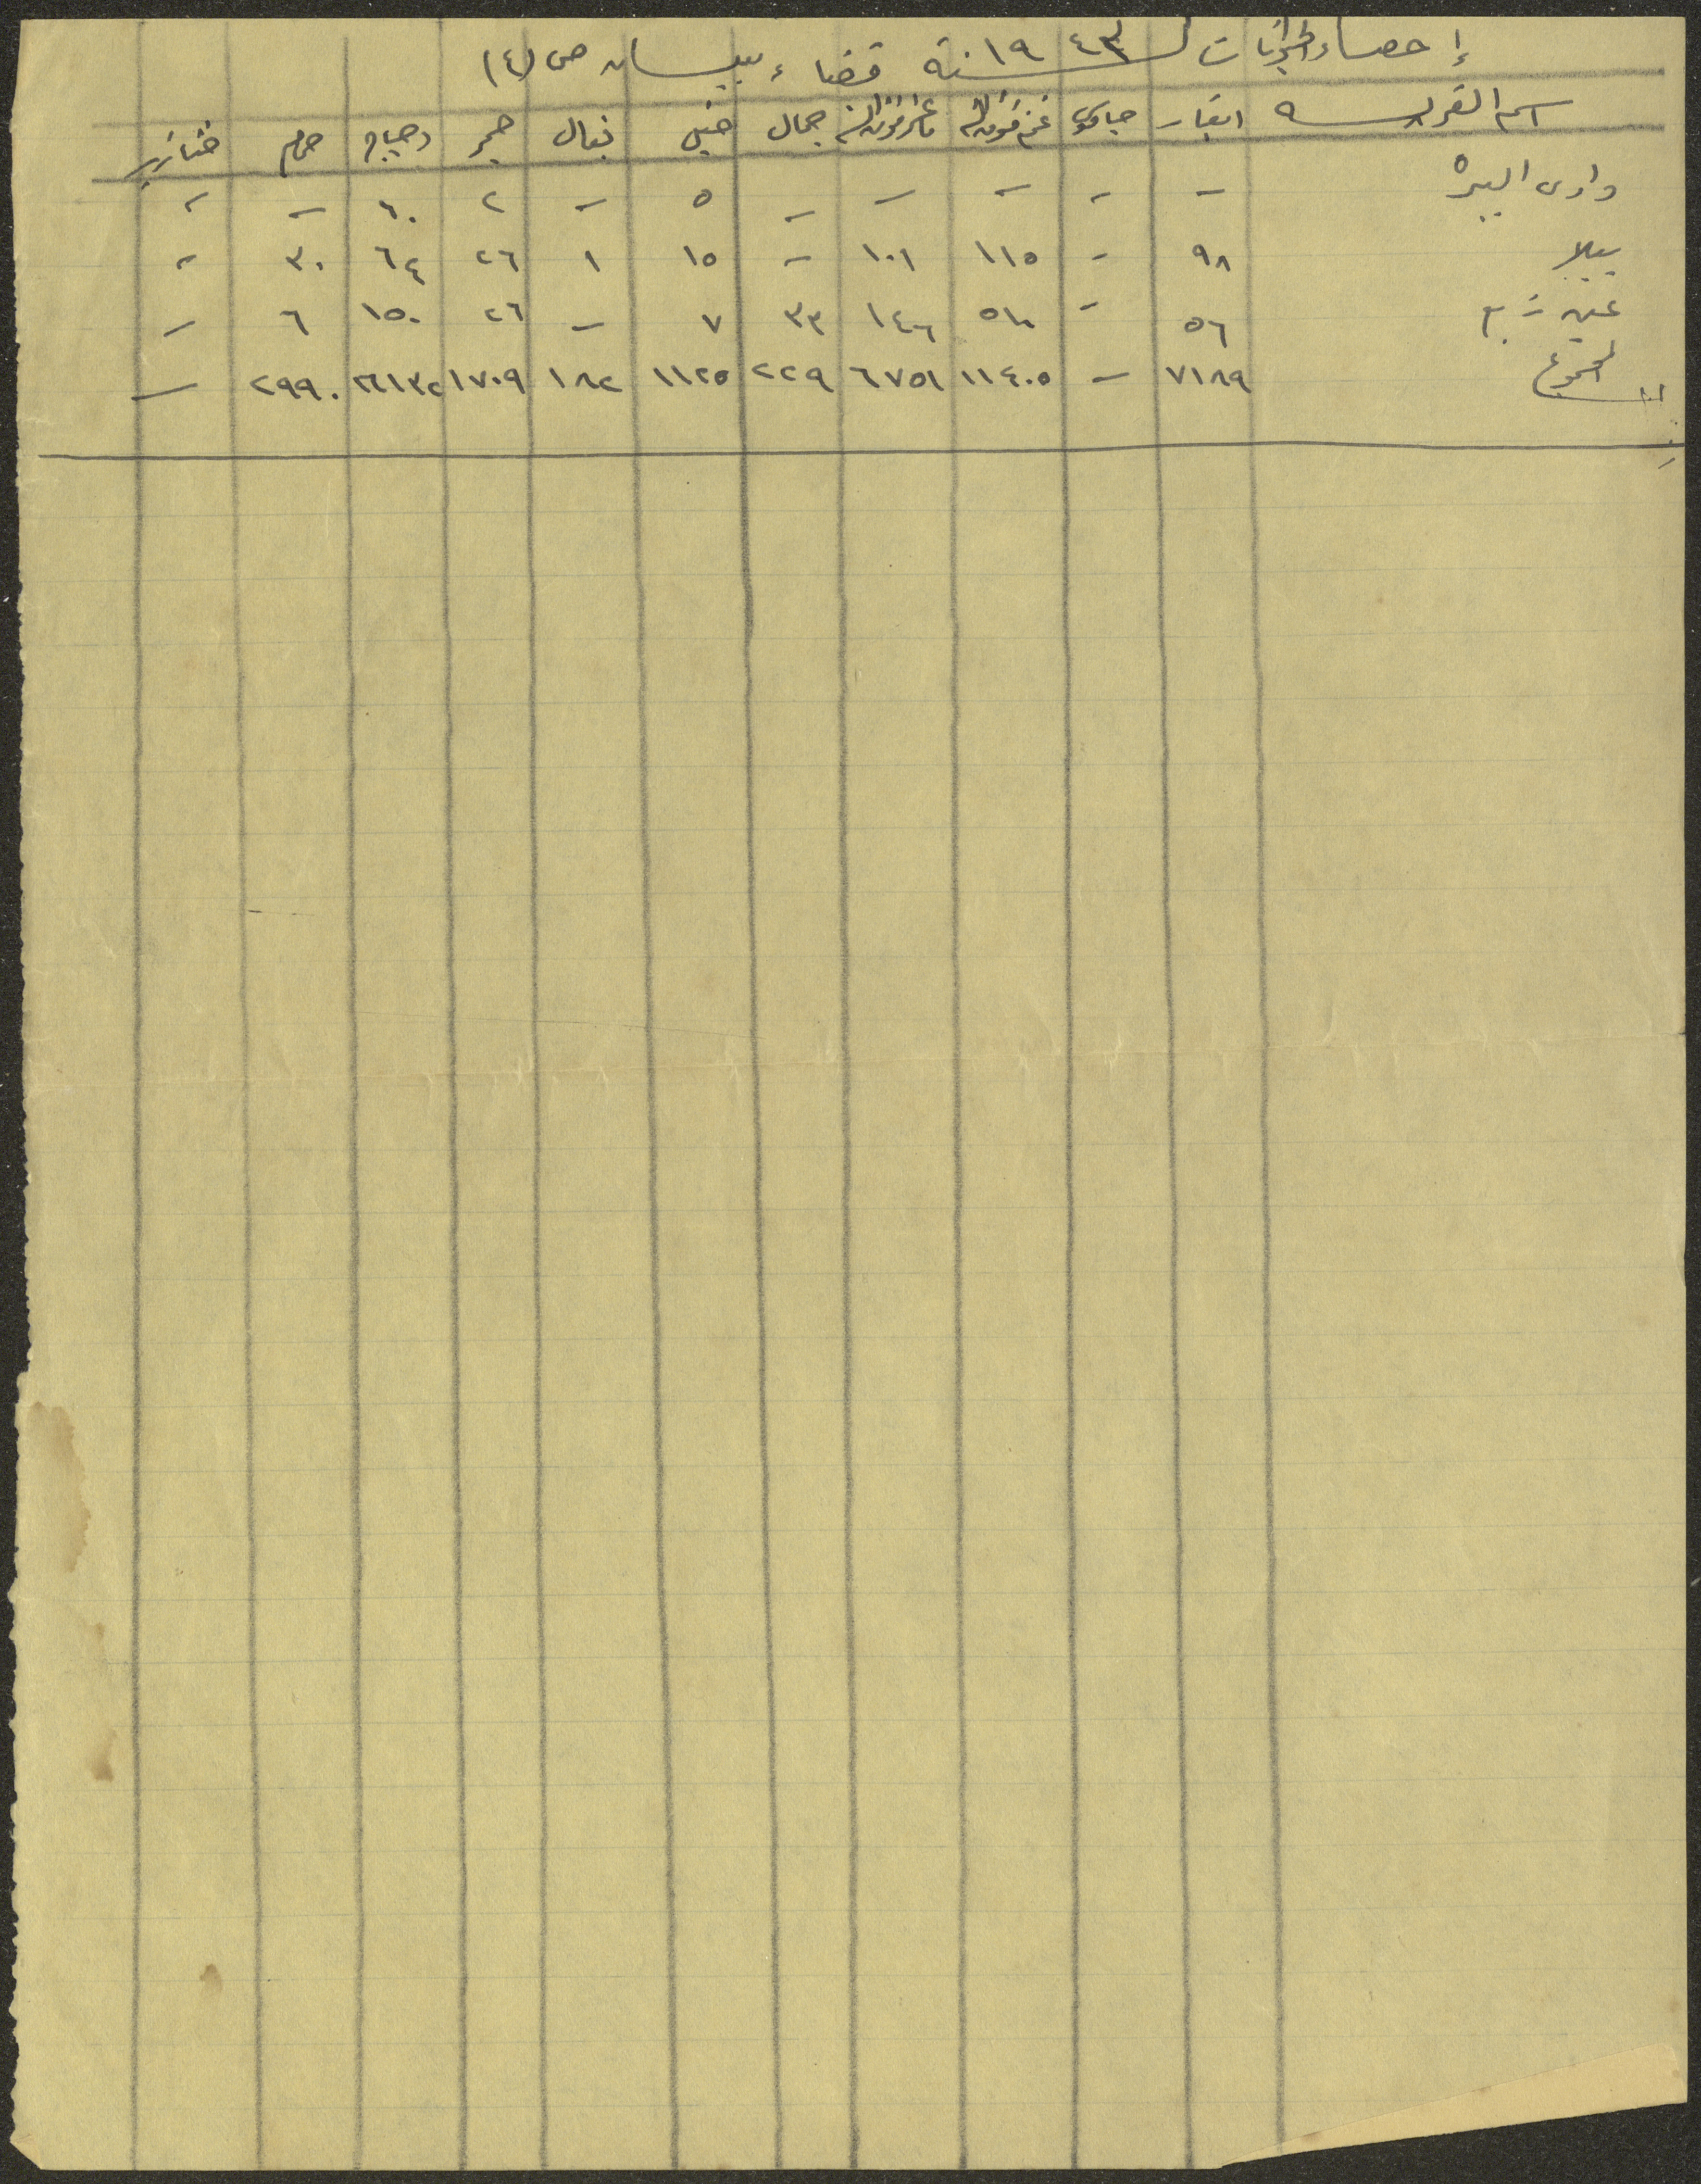 إحصاء الحيوانات لسنة ١٩٤٣ قضاء بيسان ص (٤)
اسم القرية ابقار جواميس غنم فوق السنة ماعز فوق السنة جمال خيل بغال حمير دجاج حمام خنازير
وادى البيرة - - - - - ٥ - ٢ ٦٠ - -
يبلا ٩٨ - ١١٥ ١٠١ - ١٥ ١ ٢٦ ٦٤ ٣٠ -
٥٦ - ١٤٦ ٣٣ ٧ - ٢٦ ١٥٠ ٦ -
المجموع ٧١٨٩ - ١١٤٠٥ ٦٧٥١ ٢٢٩ ١١٢٥ ١٨٢ ١٧٠٩ ٢٩٩٠ -